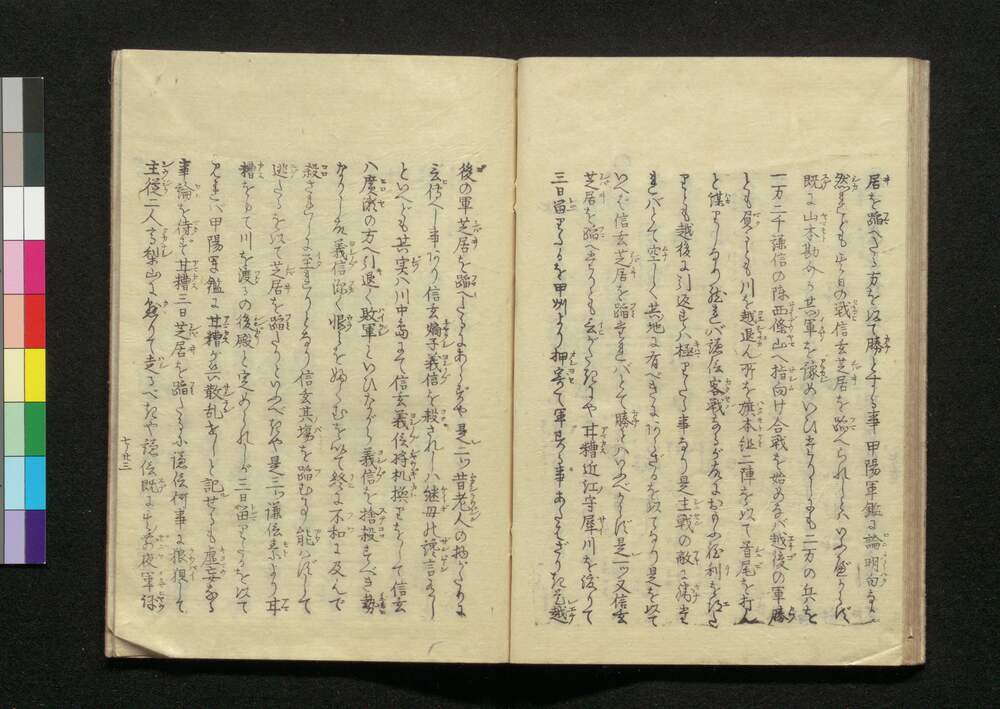 居を踏へたる方を以て勝と千る事甲陽軍鑑に論明白なり
然れども此日の戦信玄芝居を踏へられしとハいふ可からず
既に山本勘介が其軍を謀めいひけりしにも二万の兵を
一万二千謙信の陣西條山へ指向け合戦を始めなバ越後の軍勝
とも負くるとも川を越退ん所を旗本組二陣を以て首尾を打ん
と謀りしなり然れバ謙信客戦なるが故におのが利を得た
りとも越後に引返すハ極りたる事なり是主戦の敵に
ればとて空しく其地に有べきにあらざるを以てなり是を以て
いへば信玄芝居を踏まれバとて勝とハいふべからず是一ツ又信玄
芝居を踏へたりとも云がたきにや甘糟近江守犀川を渡りて
三日留りたるを甲州より押寄て軍する事あらざりき是越
後の軍芝居を踏へたるにあらずや是二ツ昔老人の物がたりに
云伝へし事あり信玄嫡子義信を殺されしハ継母の讒言なりし
といへども其実ハ川中島にて信玄義信将机換りをして信玄
ハ廣瀬の方へ引退く敗軍といひながら義信を捨殺すべき勢
なりしかバ義信深く恨を婦くむを以て終に不和に及んで
殺されしに至れりとなり信玄其場を踏むる能ハずして
逃たるを以て芝居を踏たりといふべきや是三ツ謙信素より甘
糟をもて川を渡るの後殿と定められしが三日留りたるを以て
見れバ甲陽軍鑑に甘糟が兵散乱せしと記せるも虚妄なる
事論を待ず甘糟三日芝居を踏たるに謙信何事に狼狽して
主従二人高梨山に懸りて走るべきや謙信既に此前夜軍評
七ノ廿三